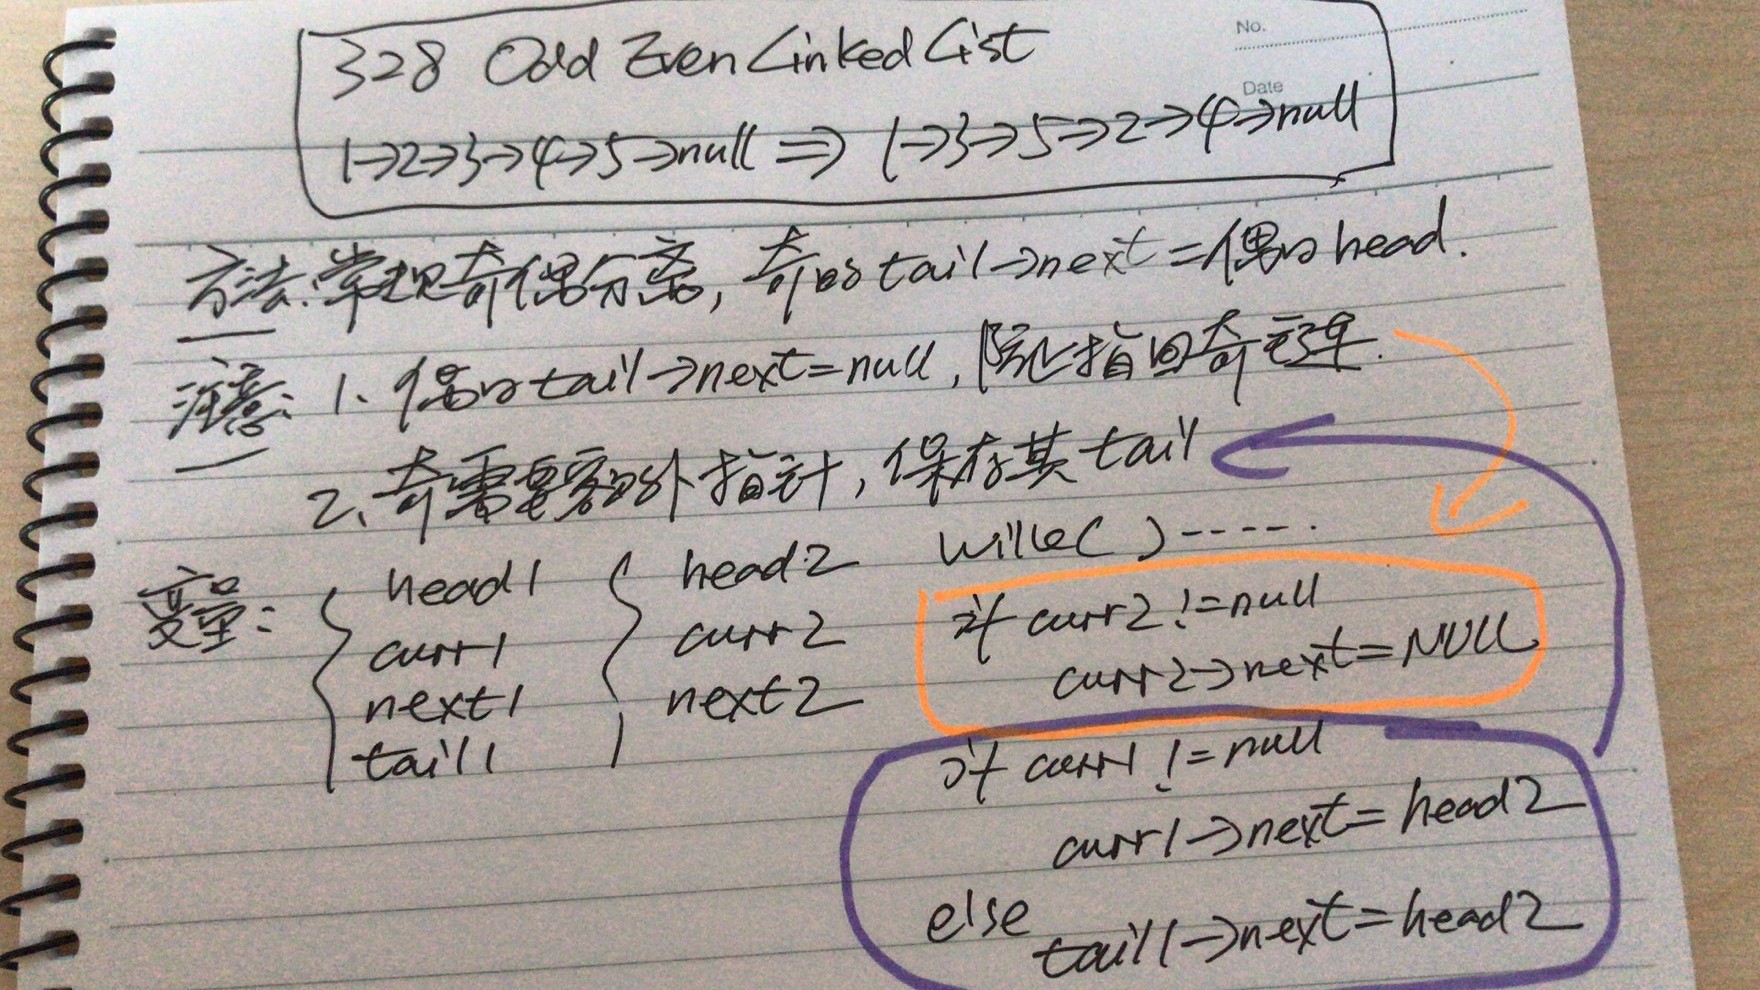 No.
Date
328 Odd Even Linked List
1->2->3->4->5->null => 1->3->5->2->4->null
方法:常规奇偶分离,奇的tail->next=偶的head.
注意:1、偶的tail->next=null,防止指回奇
2、奇需要额外指针,保存其tail
变量: { head1 { head2
curr1 curr2
next1 next2
tail1
while( )-----.
if curr2 != null
curr2->next=NULL
if curr1 != null
curr1->next=head2
else
tail1->next=head2